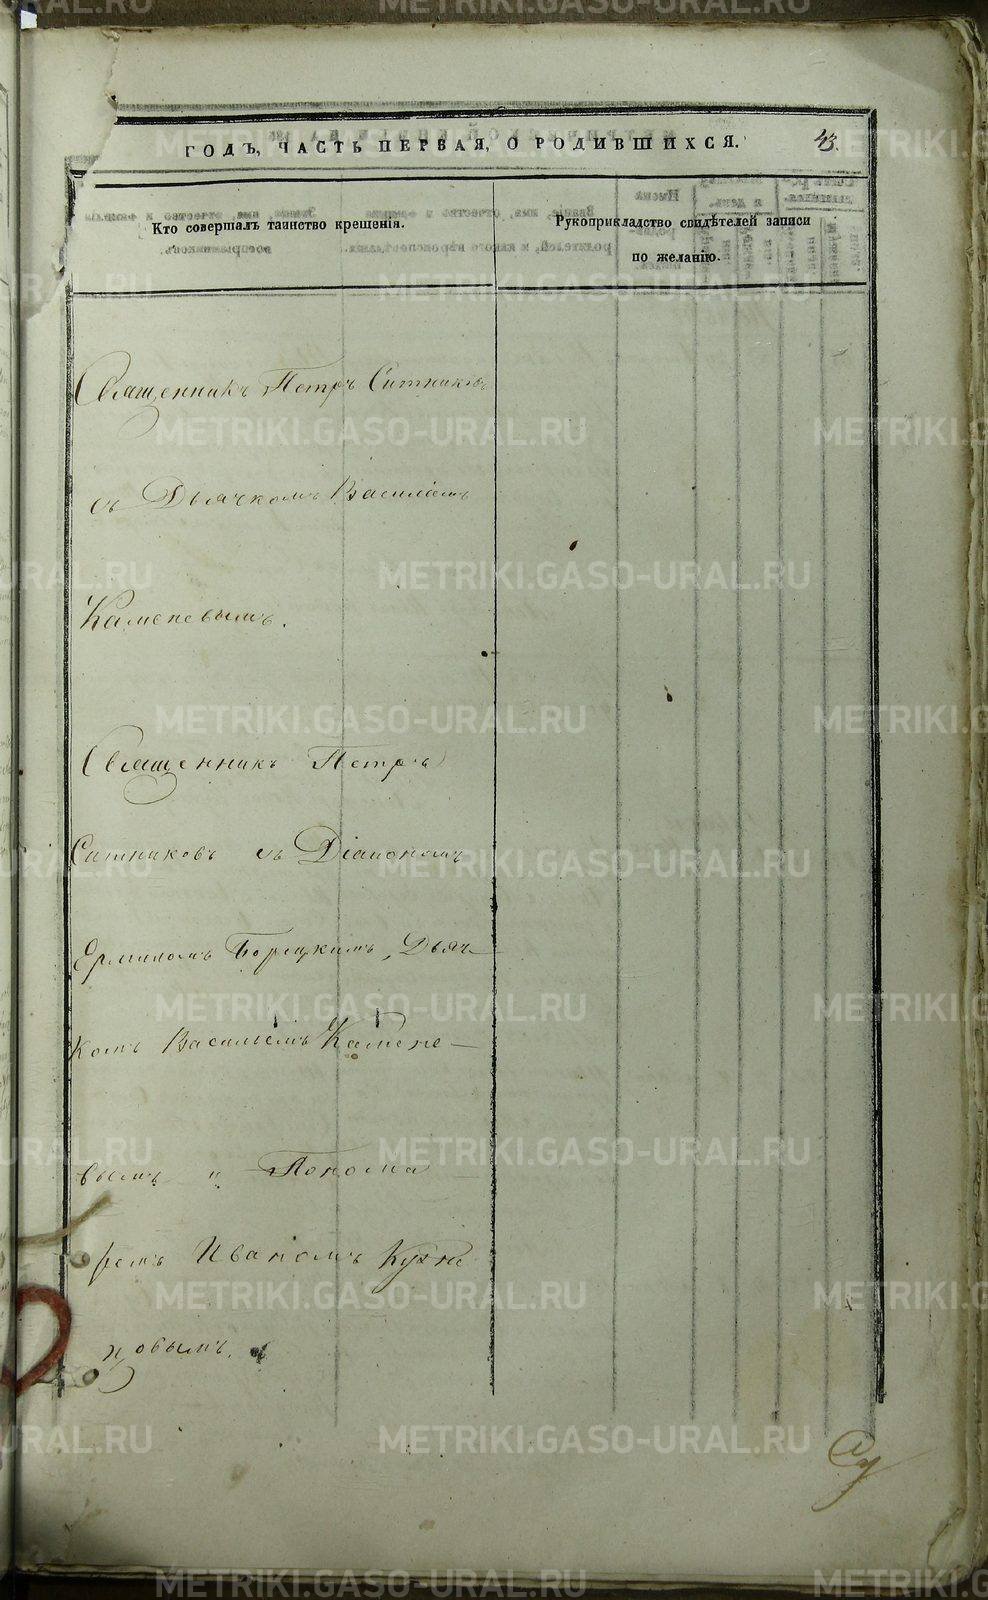 ГОДЪ, ЧАСТЬ ПЕРВАЯ, О РОДИВШИХСЯ.
43.
Кто совершалъ таинство крещенія.
Рукоприкладство свидѣтелей записи
по желанію.
Священникъ Петръ Ситниковъ
съ Дьячкомъ Василіемъ
Каменевымъ.
Священникъ Петръ
Ситниковъ съ Діакономъ
Ермиломъ Борецкимъ, Дьяч
комъ Васильемъ Камене-
вымъ и Понома
ремъ Иваномъ
новымъ.
METRIKI.GASO-URAL.RU